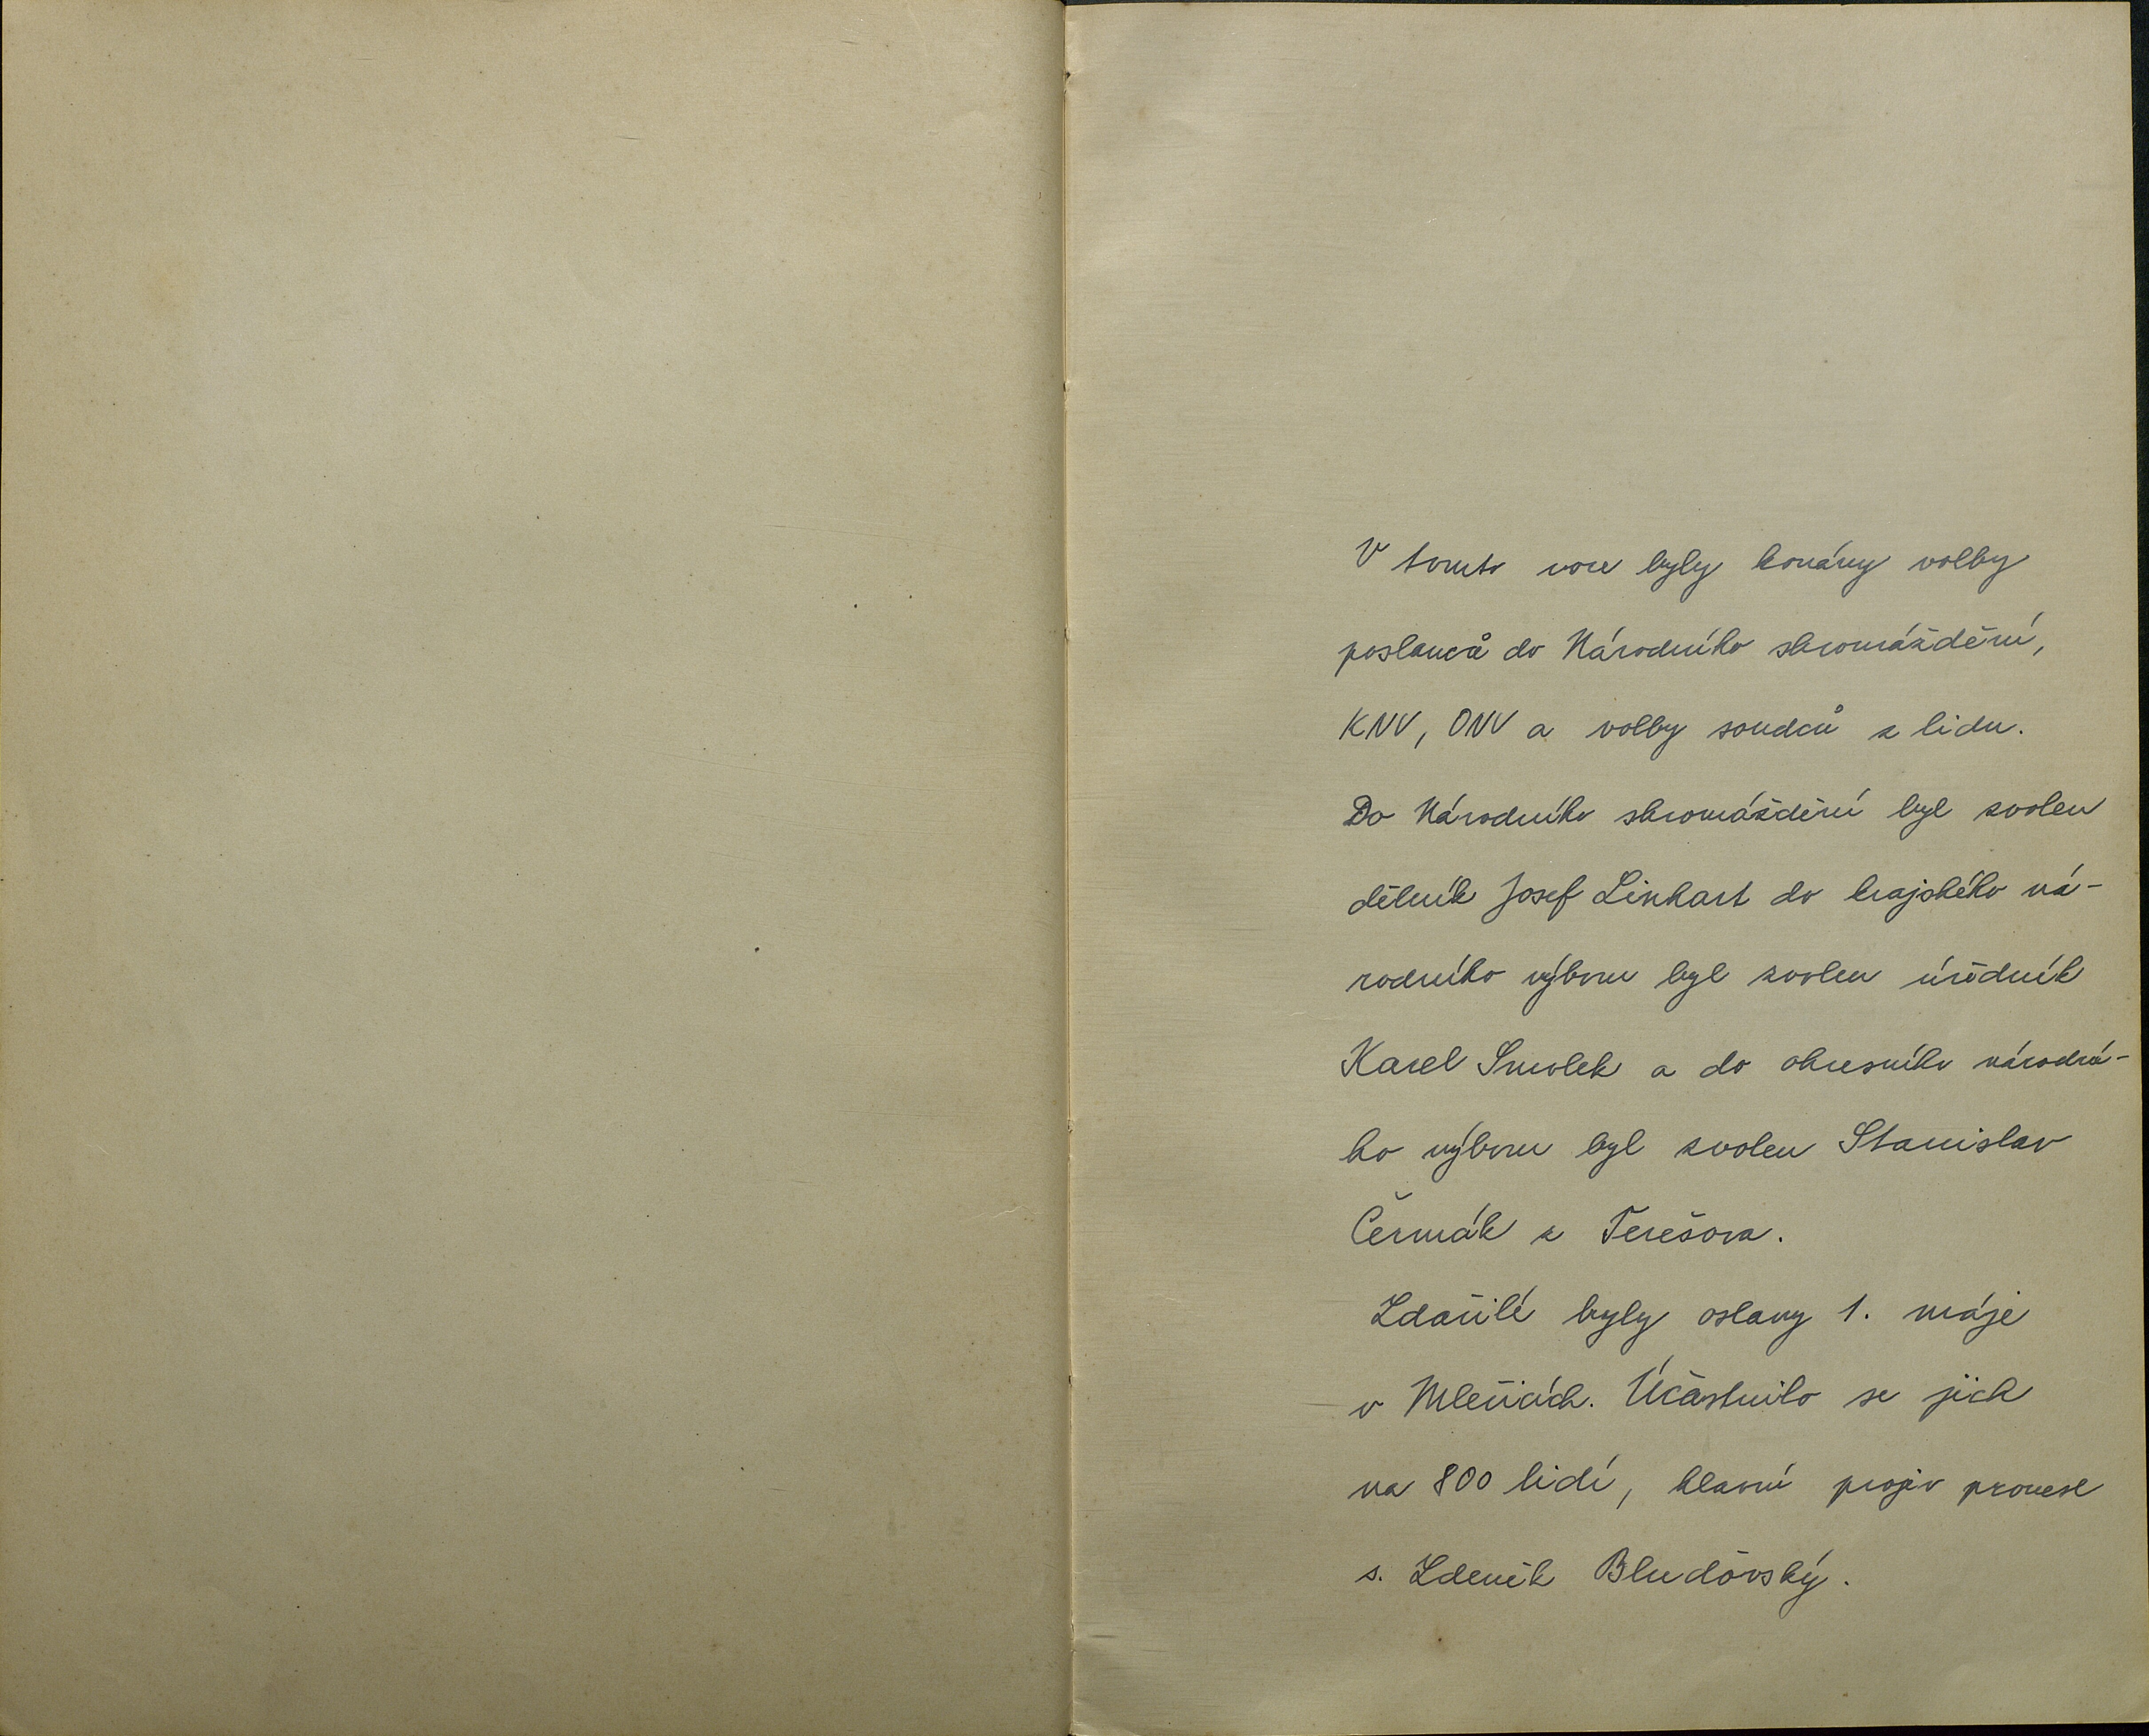 V tomto roce byly konány volby
poslanců do Národního shromáždění,
KNV, ONV a volby soudců z lidu.
Do Národního shromáždění byl zvolen
dělník Josef Linhart do krajského ná-
rodního výboru byl zvolen úředník
Karel Smolek a do okresního národní-
ho výboru byl zvolen Stanislav
Čermák z Terešova.
Zdařilé byly oslavy 1. máje
v Mlečicích. Účastnilo se jich
na 800 lidí, hlavní projev pronesl
s. Zdeněk Bludovský.